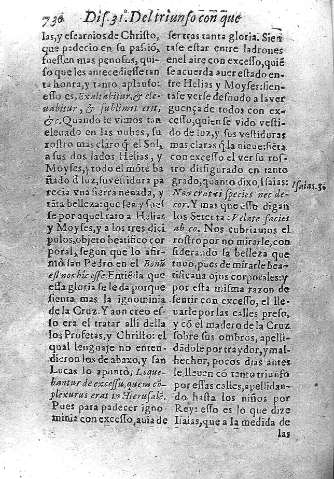 736 Dis. 31. Del triunfo cõn que
las, y escarnios de Christo,
que padecio en su passiõ,
fuessen mas penosas, quiso
que les antecediesse tan
ta honra, y tanto aplauso:
esso es, Exaltabitur, & ele-
uabitur, & sublimis erit,
&c. Quando le vimos tan
eleuado en las nubes, su
rostro mas claro q̃ el Sol,
a sus dos lados Helias, y
Moyses, y todo el mõte ba
ñado d̃ luz, su vestidura pa
recia vna sierra neuada, y
tãta belleza: que sea y fues
se por aquel rato a Helias
y Moyses, y a los tres dici
pulos, objeto beatifico cor
poral, segun que lo afir
mò san Pedro en el Bonũ
est nos hic esse. Entiẽda que
essa gloria se le da porque
sienta mas la ignominia
de la Cruz. Y aun creo es-
so era el tratar alli della
los Profetas, y Christo: el
qual lenguaje no enten-
dieron los de abaxo, y san
Lucas lo apuntò, Loque-
bantur de excessu, quem cõ-
pleturus erat in Hierusalẽ.
Pues para padecer igno
minia con excesso, auia de
ser tras tanta gloria. Sien
tase estar entre ladrones
en el ayre con excesso, quiẽ
se acuerda auer estado en-
tre Helias y Moyses: sien-
tase verse desnudo a la ver
guença de todos con ex-
cesso, quien se vido vesti-
do de luz, y sus vestiduras
mas claras q̃ la nieue: sieta
con excesso el ver su ros-
tro disfigurado en tanto
grado, quanto dixo, Isaias:
Isaias. 53
Non erat ei species nec de-
cor. Y mas que esso digan
los Setenta: Velate facies
ab eo. Nos cubriamos el
rostro por no mirarle, con
siderando la belleza que
tuuo, pues de mirarle bea-
tificaua ojos corporales: y
por esta misma razon de
sentir con excesso, el lle-
uarle por las calles preso,
y cõ el madero de la Cruz
sobre sus ombros, apelli-
dado por traydor, y mal-
hechor, pocos dias antes
le lleuen cõ tanto triunfo
por essas calles, apellidan-
do hasta los niños por
Rey: esso es lo que dize
Isaias, que a la medida de
las